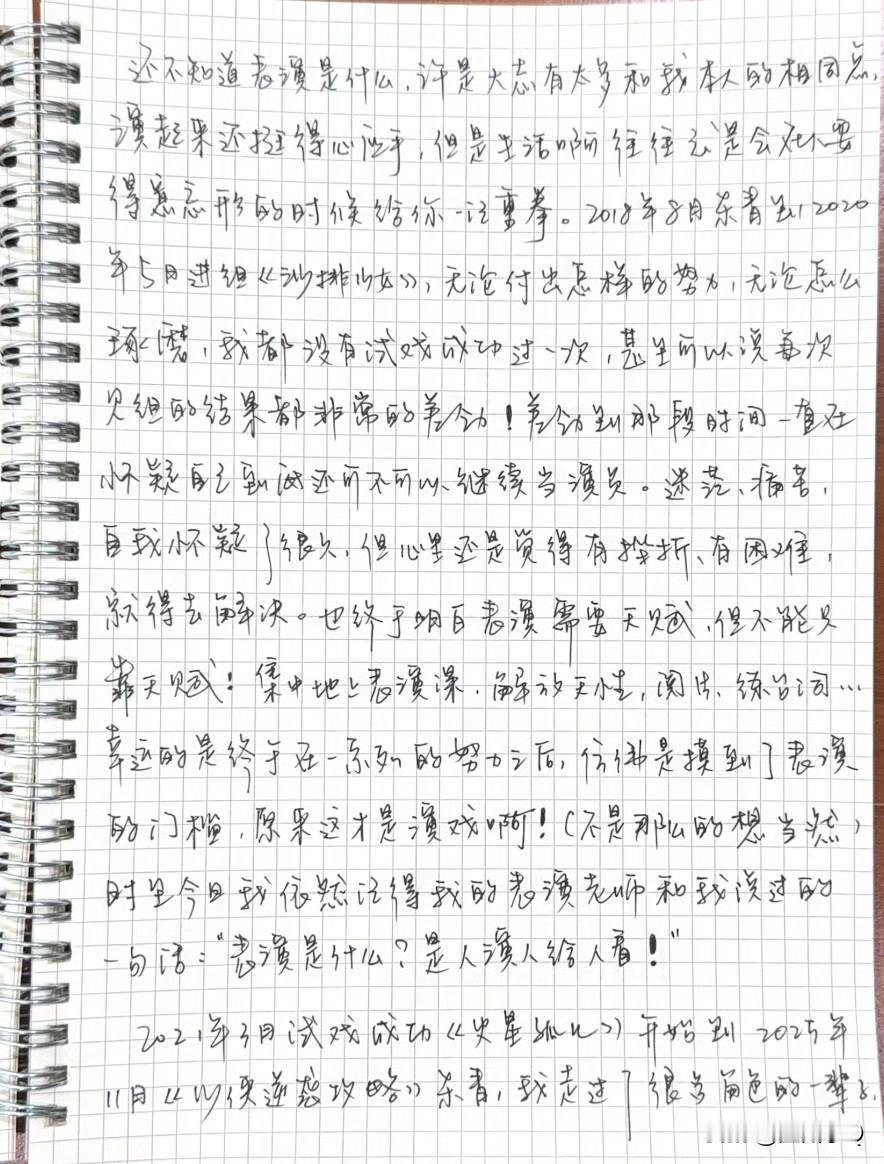 还不知道表演是什么，许是大志有太多和我本人的相同点，
演起来还挺得心应手，但是生活啊往往总是会在你要
得意忘形的时候给你一记重拳。2018年8月杀青到2020
年5月进组《沙排少女》，无论付出怎样的努力，无论怎么
琢磨，我都没有试戏成功过一次，甚至可以说每次
见组的结果都非常的差劲！差劲到那段时间一直在
怀疑自己到底还可不可以继续当演员。迷茫、痛苦，
自我怀疑了很久，但心里还是觉得有挫折、有困难，
就得去解决。也终于明白表演需要天赋，但不能只
靠天赋！集中地上表演课，解放天性，阅片、练台词…
幸运的是终于在一系列的努力之后，仿佛是摸到了表演
的门槛，原来这才是演戏啊！（不是那么的想当然）
时至今日我依然记得我的表演老师和我说过的
一句话：“表演是什么？是人演人给人看！”
2021年3月试戏成功《失星孤儿》开始到2025年
11月《 逆袭攻略》杀青，我走过了很多角色的一辈子，